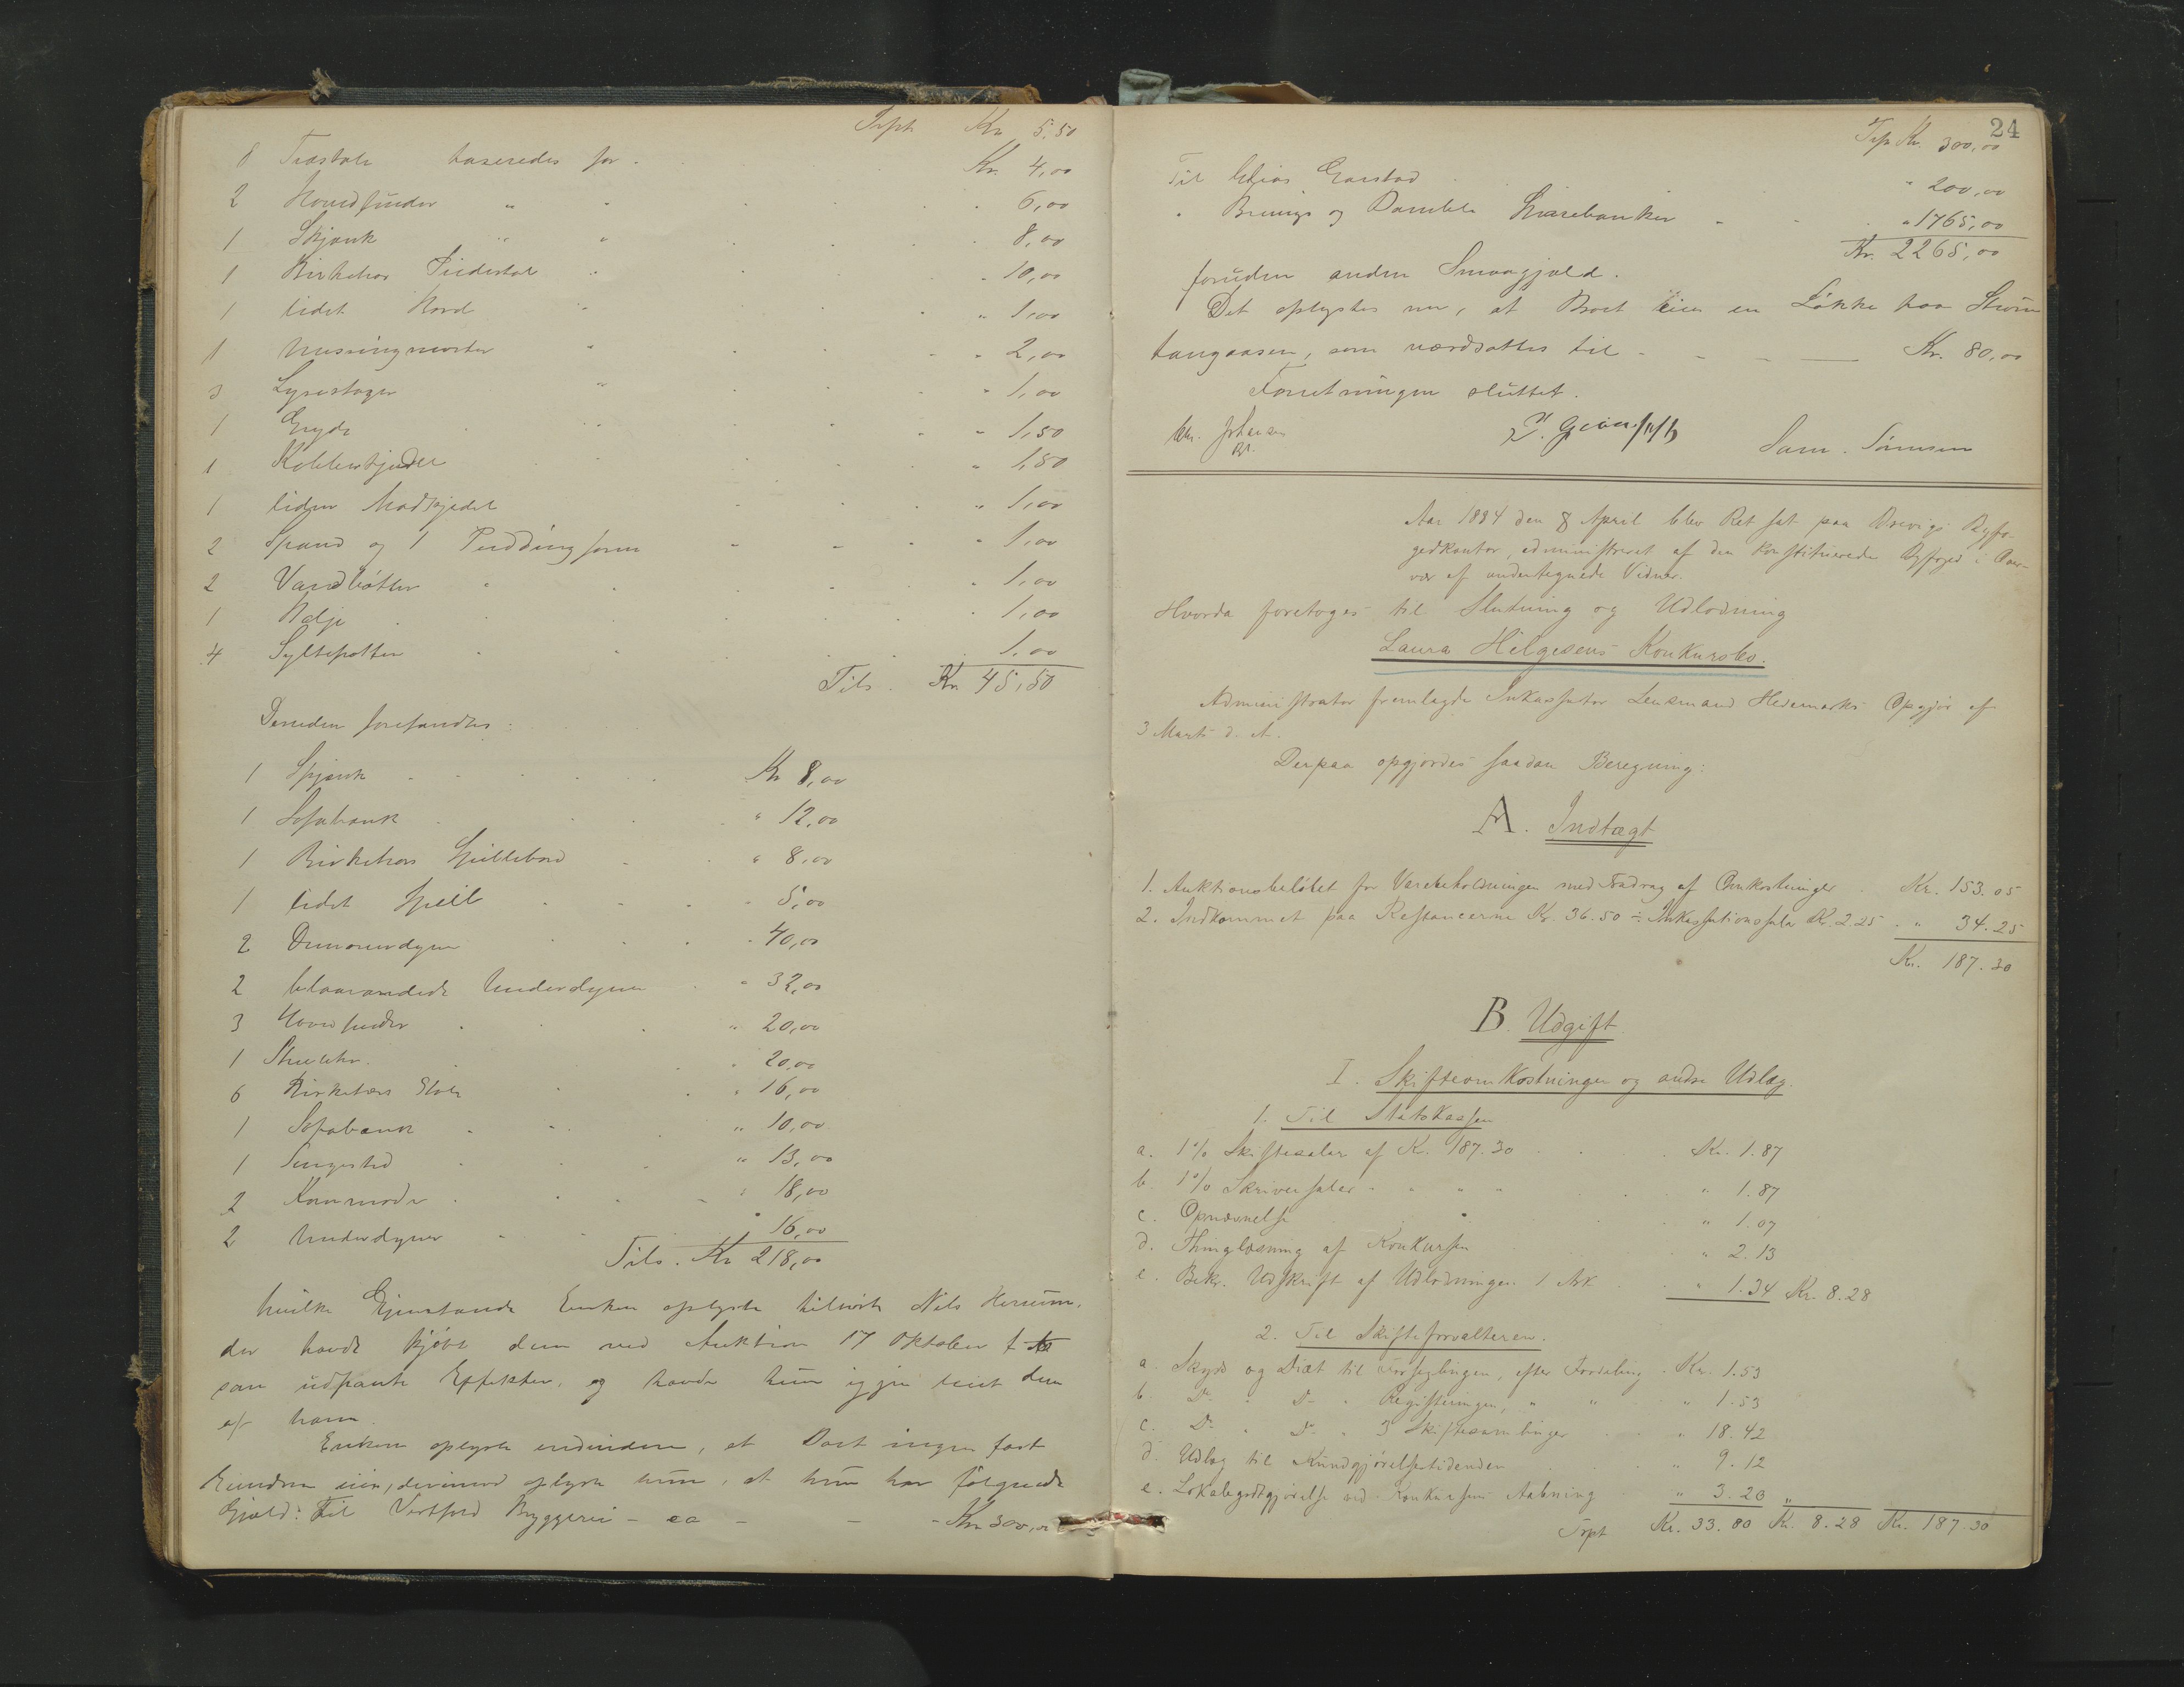 Trpt Kr 5.50
8 Træstole taxeredes for Kr. 4,00
2 Hovedpuder " " 6,00
1 Skjænk " " 8,00
1 Birketræs Piedestal " 10,00
1 lidet Bord " " 1,00
1 Messingmorter " " 2,00
3 Lysestager " " 1,00
1 Gryde " 1,50
1 Kobberkjedel " 1,50
1 liden Madkjedel " 1,00
2 Spand og 1 Puddingform " 1,00
2 Vandbøtter " 1,00
1 Balje " 1,00
4 Syltepotter " 1,00
Tils. Kr 45,50
Desuden forefandtes:
1 Skjænk Kr 8,00
1 Sofabænk " 12,00
1 Birketræs Spillebord " 8,00
1 lidet Speil " 5,00
2 Dunoverdyner " 40,00
2 blaarandede Underdyner " 32,00
3 Hovedpuder " 20,00
1 Stueuhr " 20,00
6 Birketræs Stole " 16,00
1 Sofabænk " 10,00
1 Sengested " 13,00
2 Kommoder " 18,00
2 Underdyner " 16,00
Tils. Kr 218,00
hvilke Gjenstande Enken oplyste tilhørte Nils
der havde kjøbt dem ved Auktion 17 Oktober f. A.
som udpante Effekter, og havde hun igjen leiet dem
af ham.
Enken oplyste endvidere, at Boet ingen fast
Eiendom eier, derimod oplyste hun, at hun har følgende
Gjæld: Til Vestfold Bryggeri - ca - - - Kr 300,00
24
Trp Kr. 300,00
Til Elias Garstad " 200,00
" Brevigs og Bamble Sparebanker " 1765,00
Kr. 2265,00
foruden anden Smaagjæld.
Det oplystes nu, at Boet eier en Løkke paa Strøm
tangaasen, som værdsattes til - - - Kr. 80,00
Forretningen sluttet.
Chr. Johansen Sam. Sørensen
Aar 1884 den 8 April blev Ret sat paa Brevigs Byfo-
gedkontor, administreret af den konstituerede Byfoged i Over-
vær af undertegnede Vidner.
Hvorda foretoges til Slutning og Udlodning
Laura Helgesens Konkursbo.
Administrator fremlagde Inkassator Lensmand Hedemarks Opgjør af
3 Marts d. A.
Derpaa opgjordes saadan Beregning:
A. Indtægt
1. Auktionsbeløbet for Varebeholdningen med Fradrag af Omkostninger Kr. 153.05
2. Indkommet paa Restancerne Kr. 36.50 ÷ Inkassationssalær Kr. 2.25 " 34.25
Kr. 187.30
B. Udgift
I. Skifteomkostninger og andre Udlæg.
1. Til Statskassen
a. 1% Skiftesalær af Kr. 187.30 Kr. 1.87
b. 1% Skriversalær " " " " 1.87
c. Opnævnelse " 1.07
d. Thinglæsning af Konkursen " 2.13
e. Bekr. Udskrift af Udlodningen 1 Ark " 1.34 Kr. 8.28
2. Til Skifteforvalteren.
a. Skyds og Diæt til Forseglingen, efter Fordeling Kr. 1.53
b. Do " Do " Registeringen, " " " 1.53
c. Do " Do " 3 Skiftesamlinger " 18.42
d. Udlæg til Kundgjørelsestidenden " 9.12
e. Lokalegodtgjørelse ved Konkursens Aabning " 3.20 "
Trpt Kr. 33.80 Kr. 8.28 Kr. 187.30